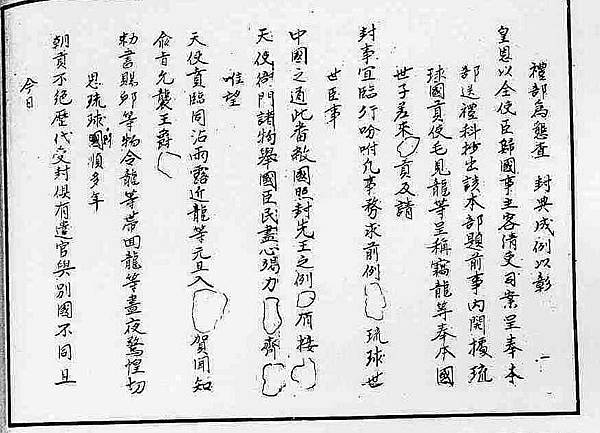 禮部為懇查 封典成例以彰 一
皇恩以全使臣歸國事主客清吏司案呈奉本
部送禮科抄出該本部題前事內開據琉
球國貢使毛見龍等呈稱竊龍等奉本國
世子差來貢及請
封事宜臨行吩咐凡事務求前例 琉球世
世臣事
中國之通此番敝國照封先王之例 接
天使衙門諸物舉國臣民盡心竭力齊
唯望
天使賁臨同沾雨露近龍等元旦入 賀聞知
俞旨允襲王爵
勅書賜卹等物令龍等帶回龍等晝夜驚惶切
思琉球國歸順多年
朝貢不絕歷代受封俱有遣官與別國不同且
今日